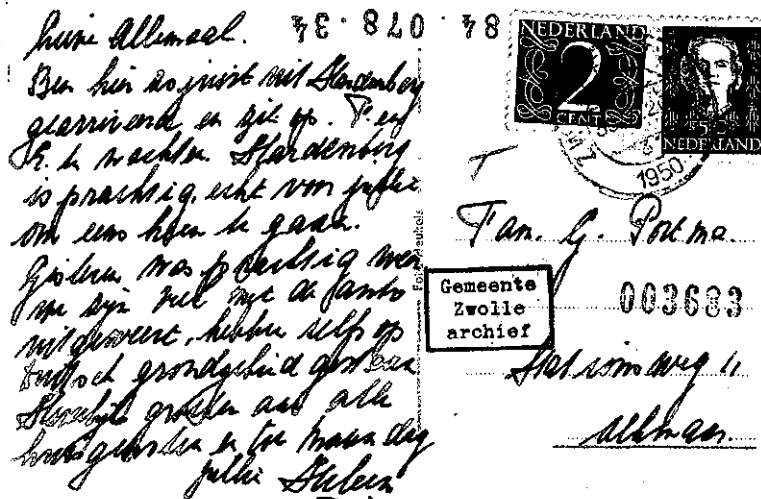 84 · 078 · 34
Lieve Allemaal.
Ben hier zo juist uit Hardenberg
gearriveerd en zit op T. en
E. te wachten. Hardenberg
is prachtig, echt voor jullie
om eens heen te gaan.
Gisteren was prachtig weer
we zijn met de
uitgeweest, hebben zelfs op
grondgebied gestaan
Hartelijke groeten aan alle
huisgenoten en tot maandag
jullie
NEDERLAND
2
CENT
NEDERLAND
1950
Fam. G. Postma.
Gemeente
Zwolle
archief
003683
Stationsweg 11